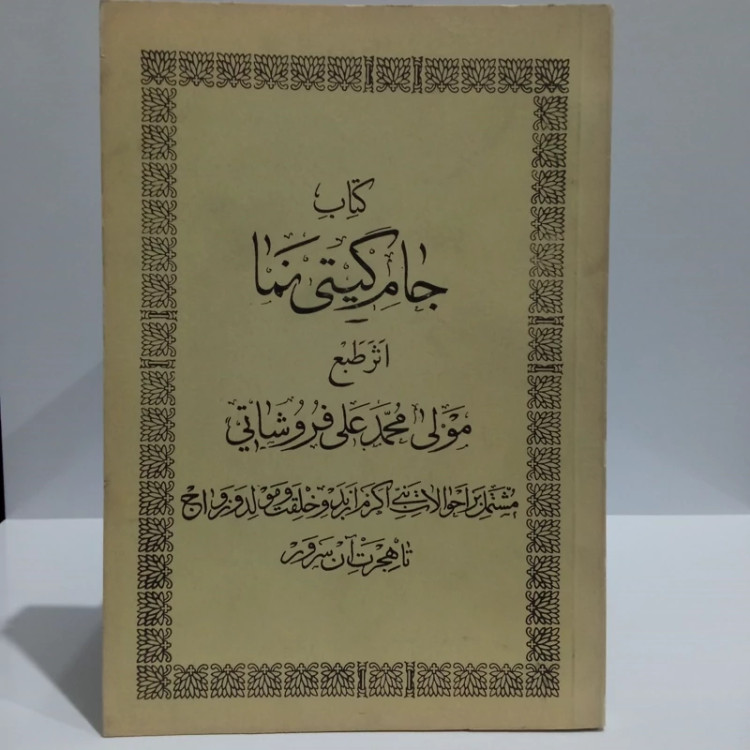 کتابِ
جامِ گیتی نَما
اَثر طَبع
مَوْلی مُحمّد عَلی فُروشاتی
مُشتمل بر احوالات نبیّ اکرم از بدو خلقت و مولد و زواج
تا هجرت آن سرور